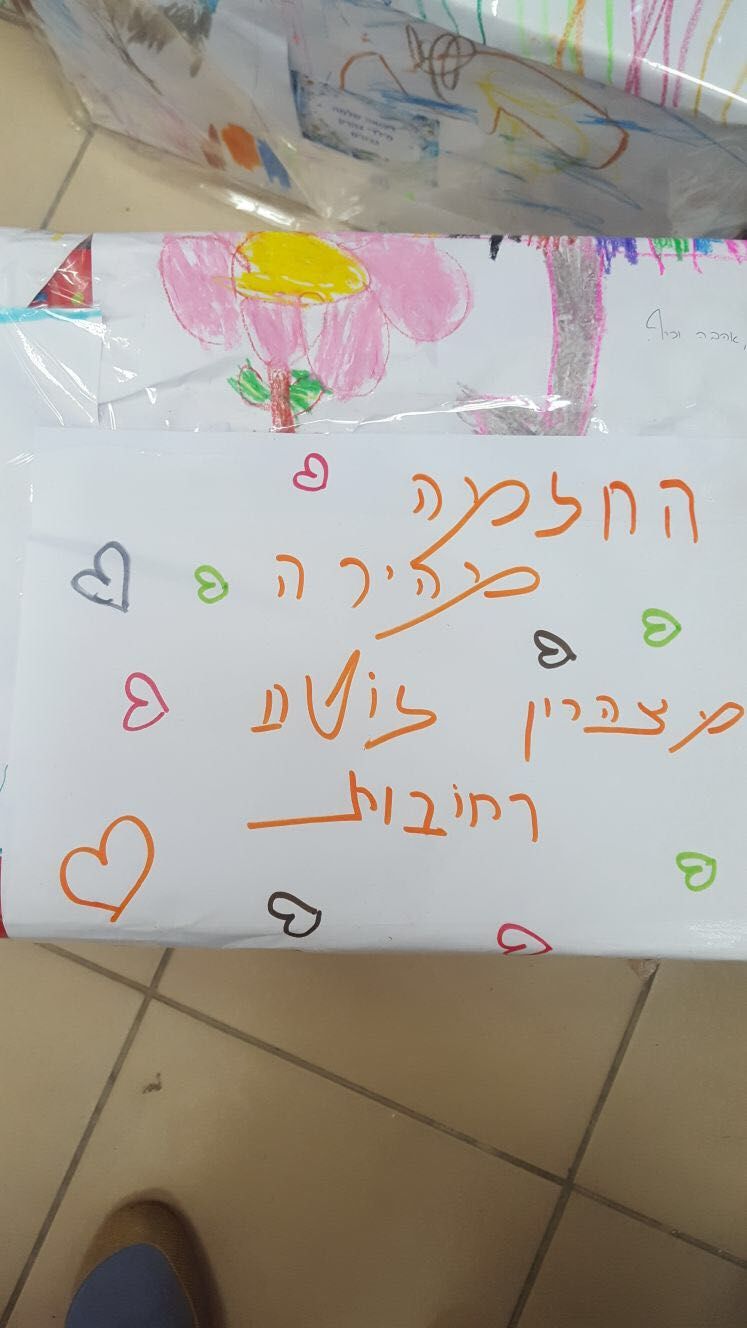 אהבה וכיף.
החלמה
מהירה
מצהרון לוטם
רחובות